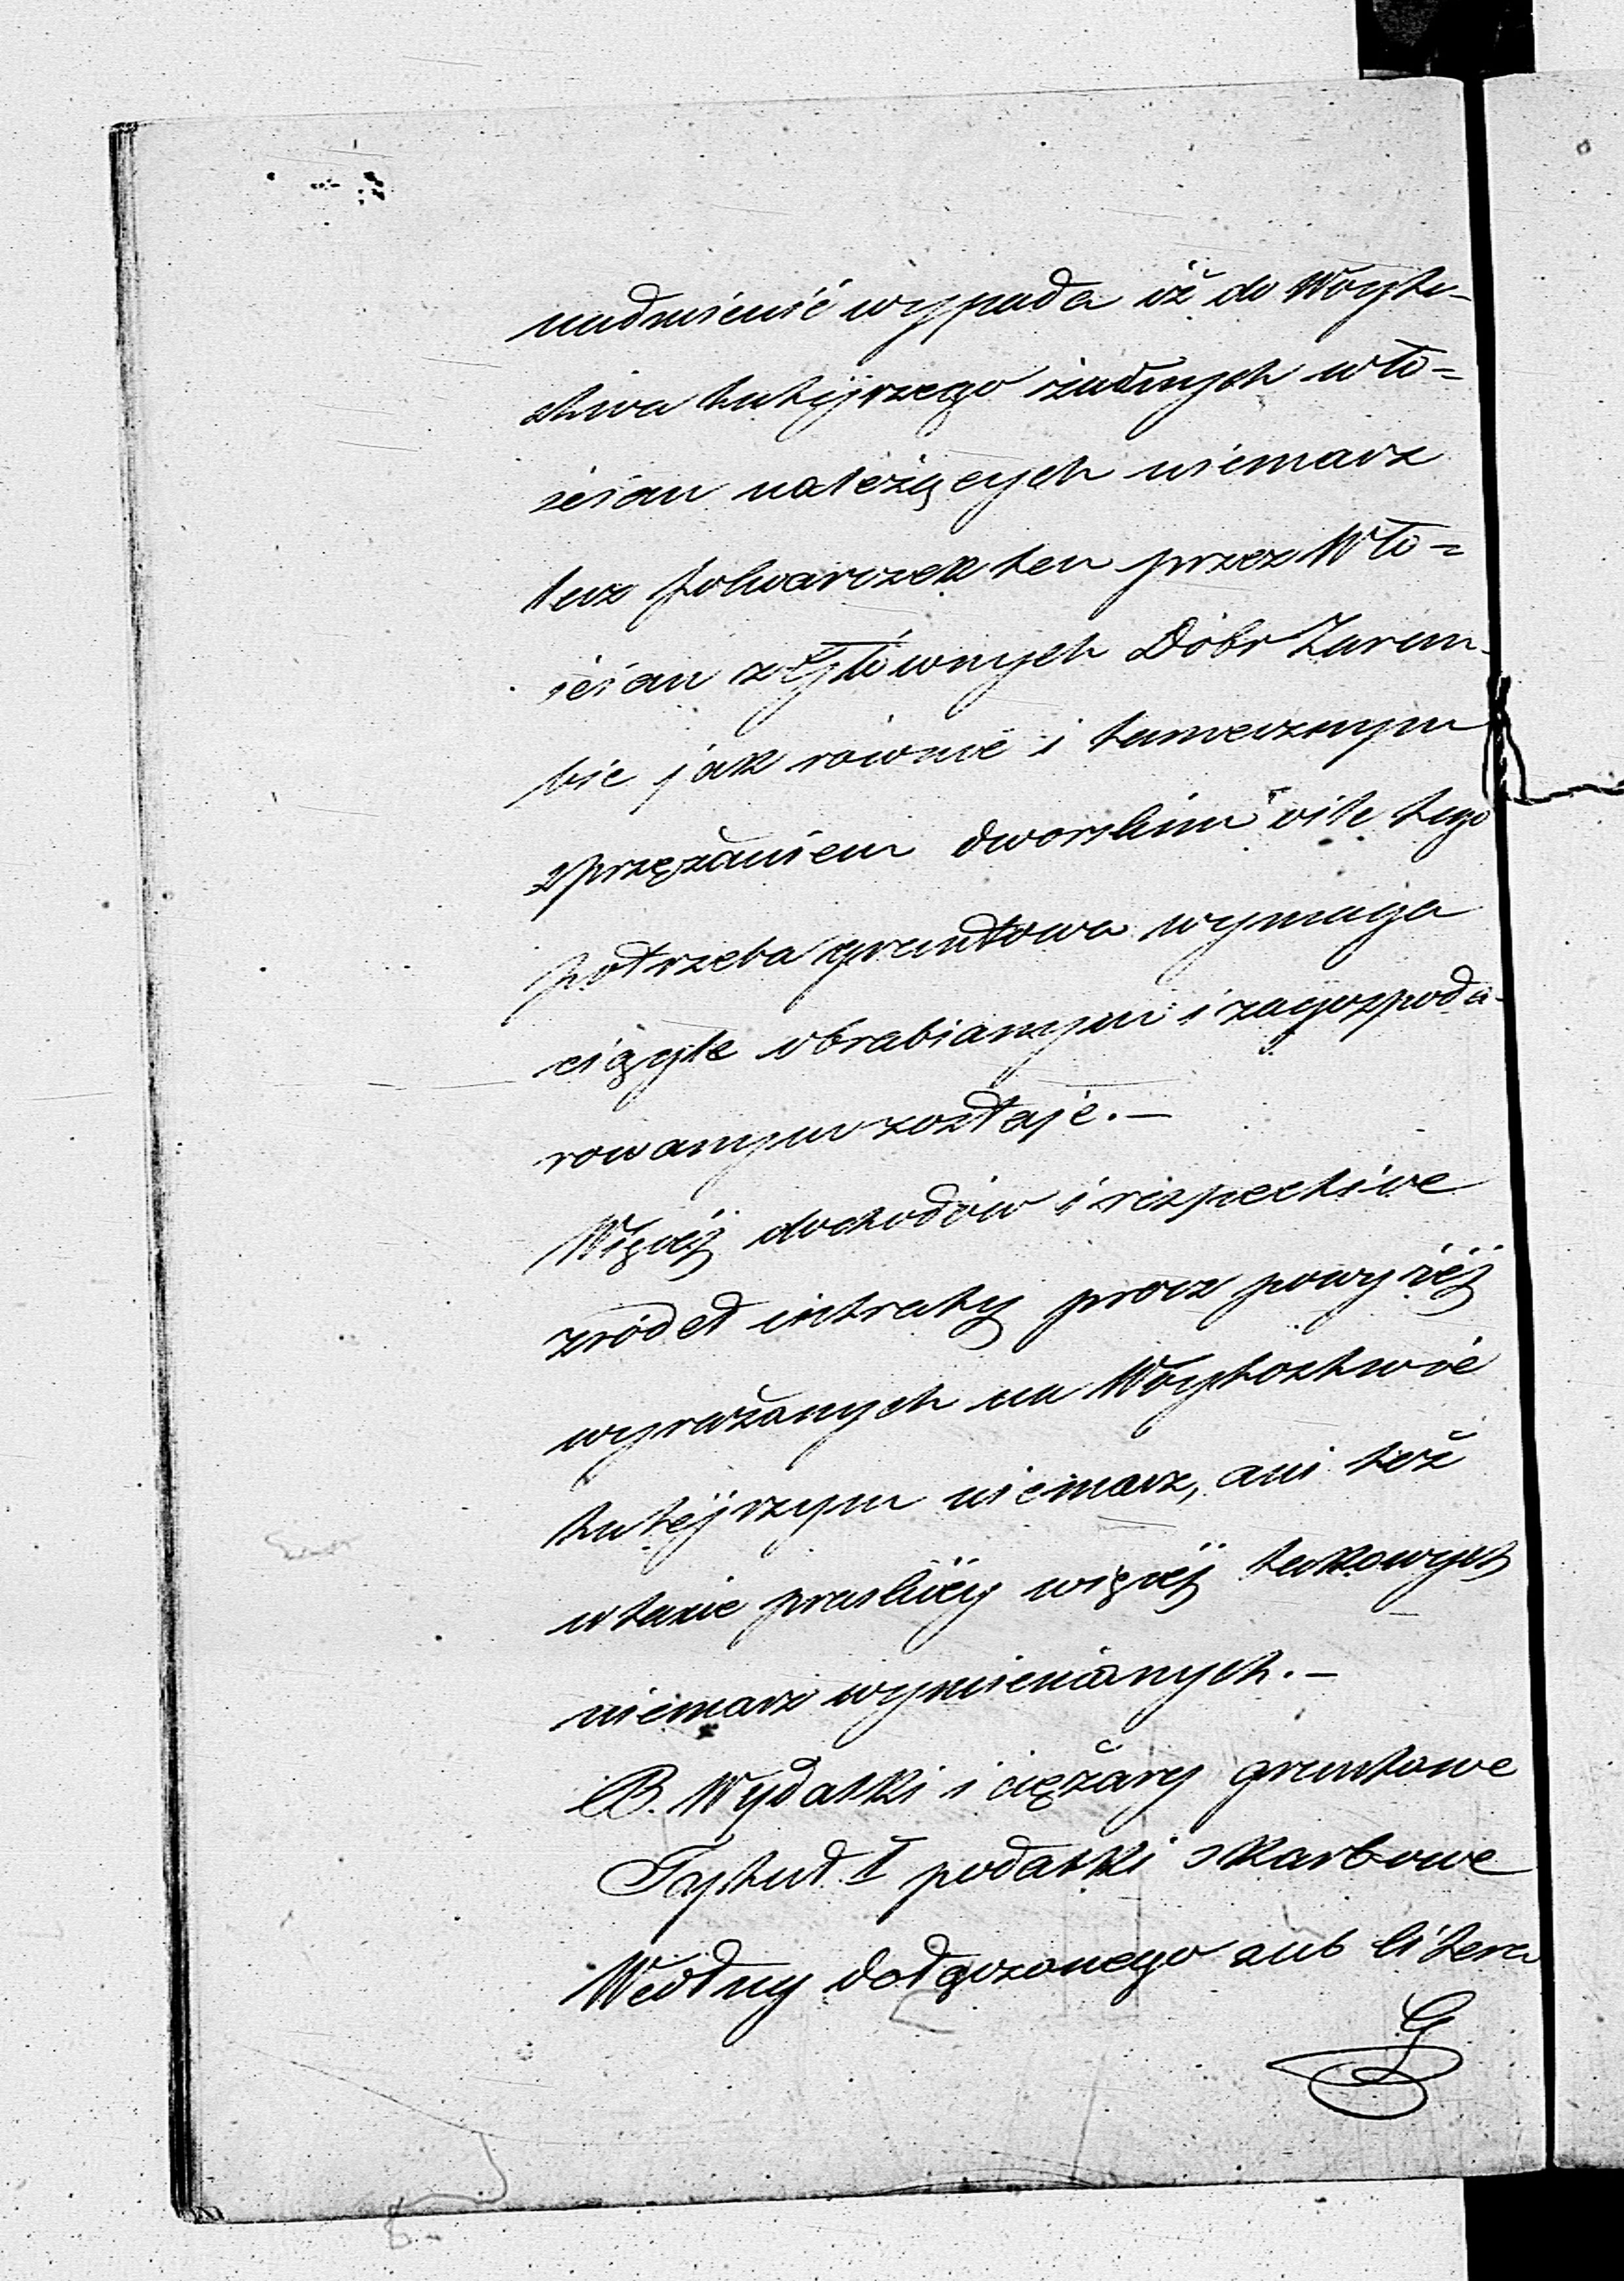 nadmienić wypada iż do Woyto-
stwa tutéjszego żadnych wło=
ścian należących niemasz
lecz folwarczek ten przez Wło=
ścian z Głównych Dóbr Zarem-
bie jak równie i tamecznym
sprzężaiem dworskim ile tego
potrzeba gruntowa wymaga
ciągle obrabianym i zagospoda-
rowanym zostaje.—
Więcéj dochodów i respective
źródeł intraty prócz powyżéj
wyrażonych na Wóytostwie
tutéjszym niemasz, ani też
w taxie pruskiéy więcéj takowych
niemasz wymienionych.—
B. Wydatki i ciężary gruntowe
Tytuł I podatki skarbowe
Według dołączonego sub litera
G